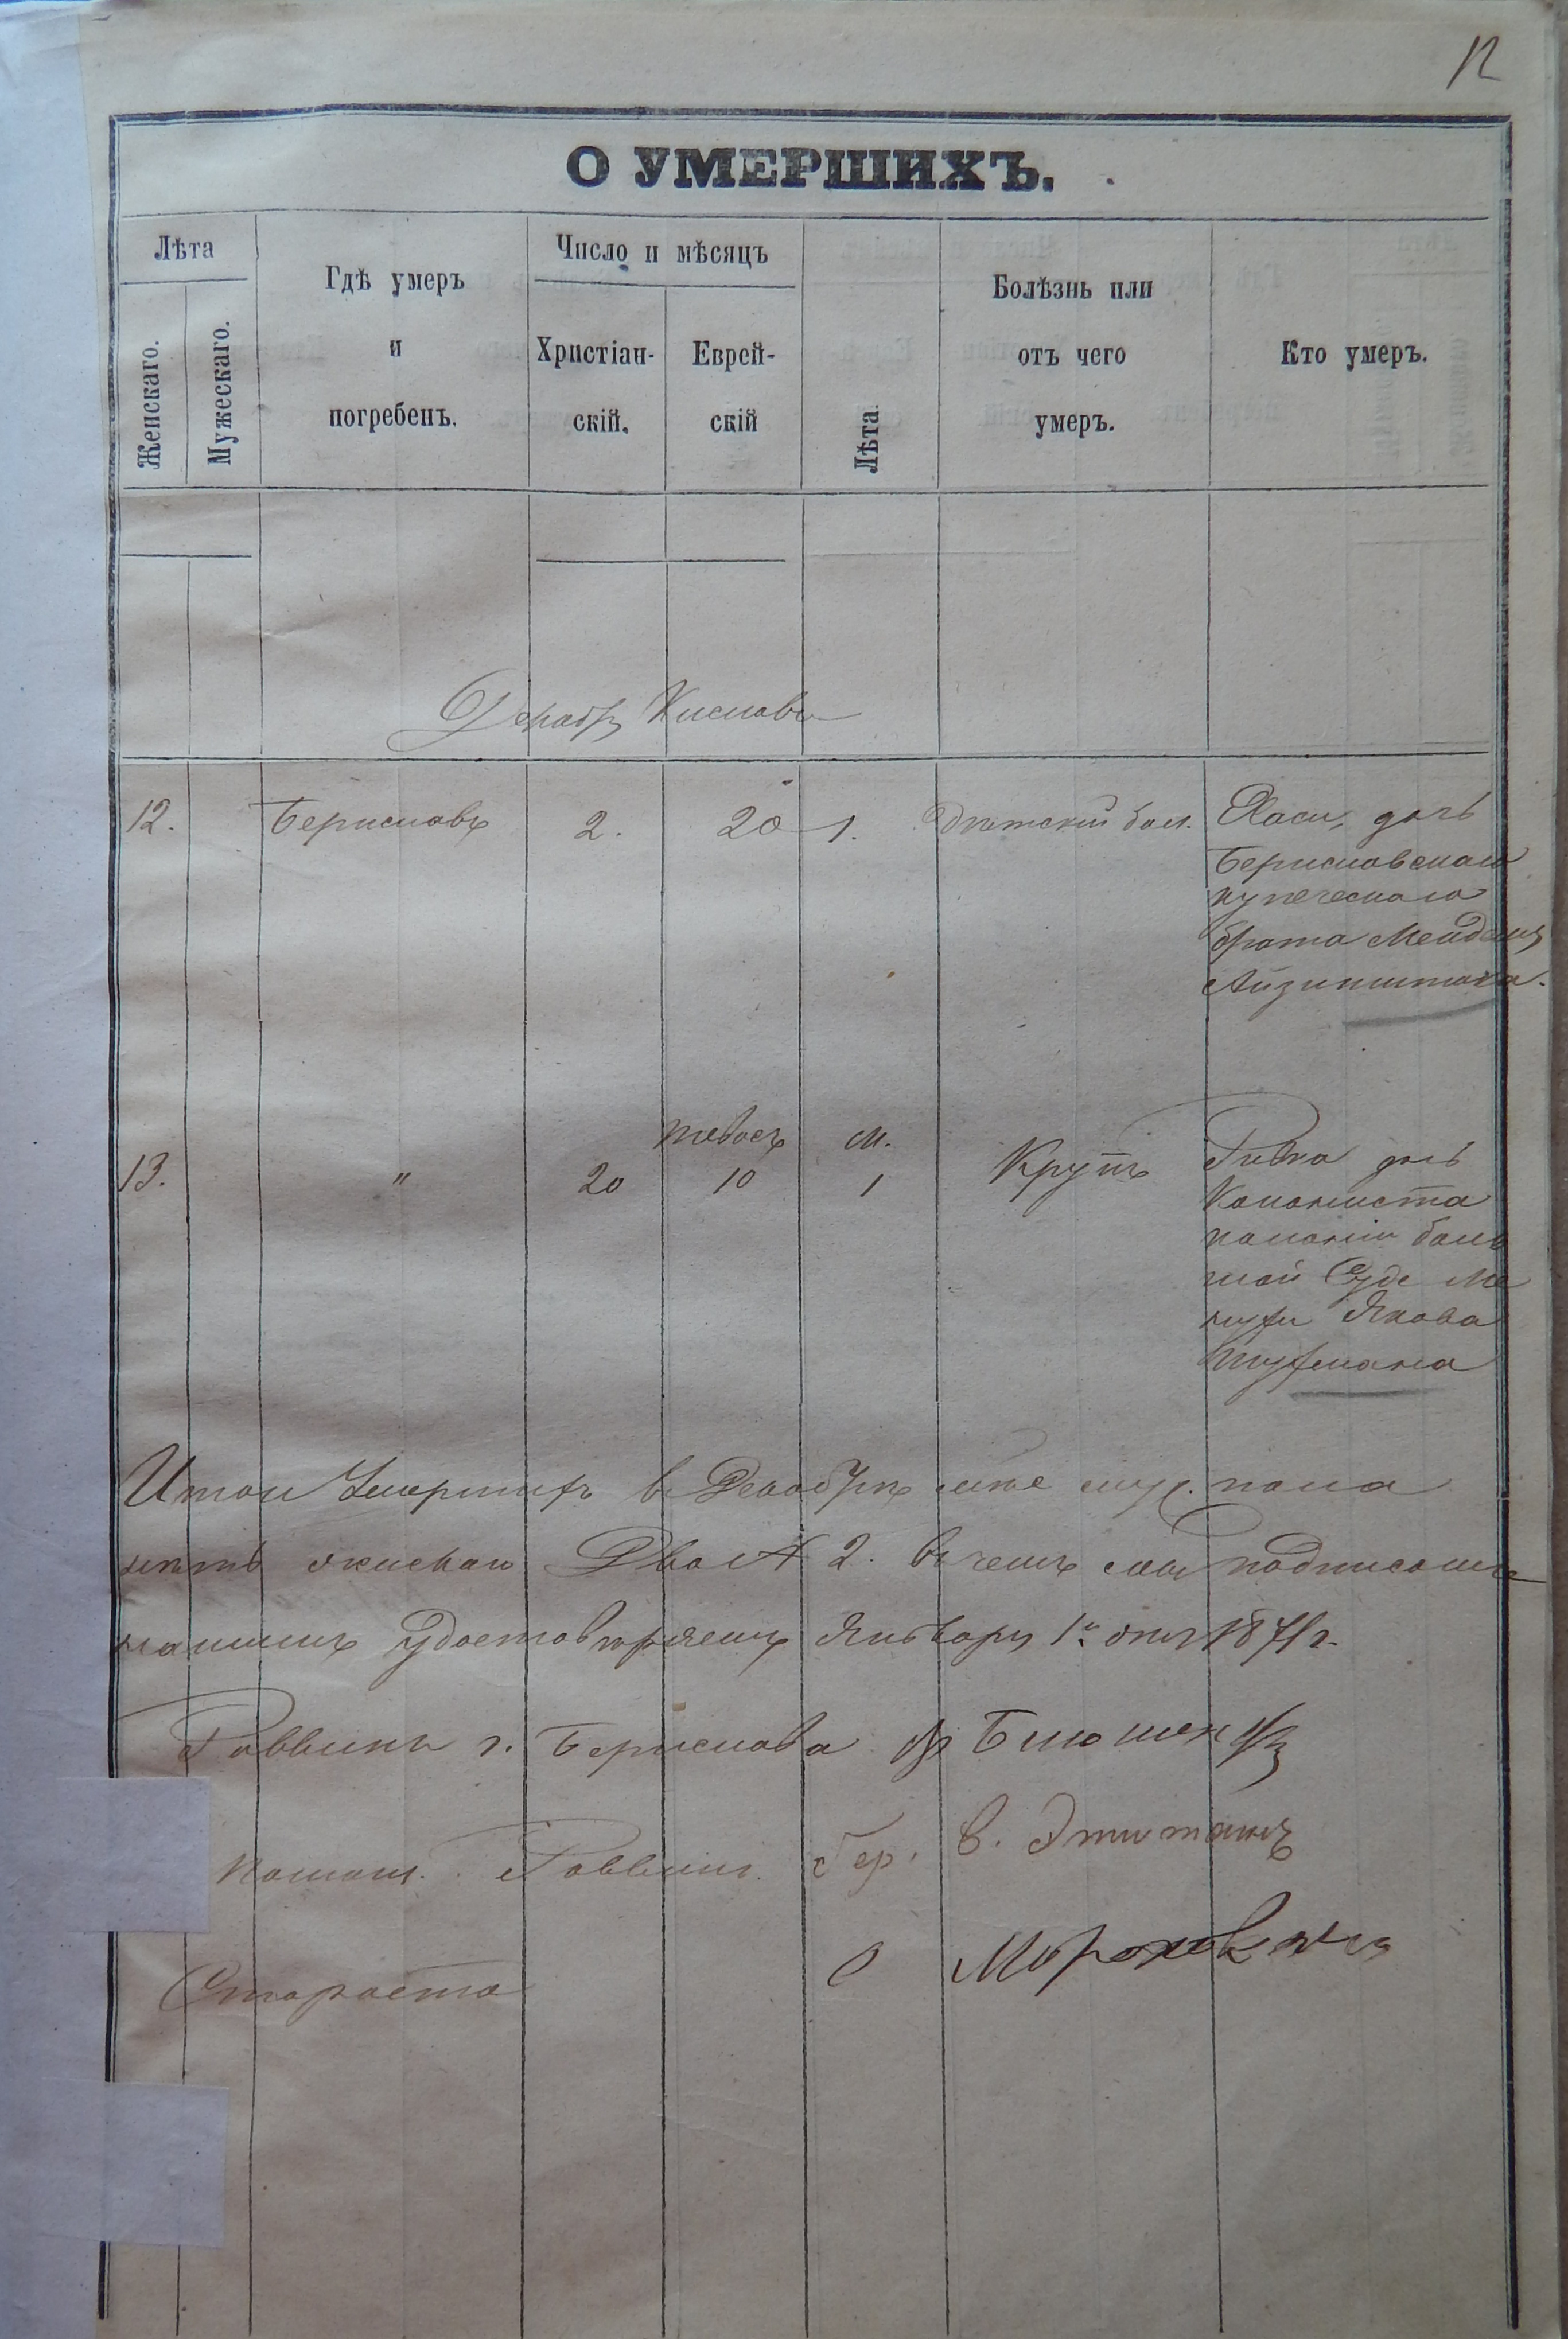 12
О УМЕРШИХЪ.
Лѣта
Женскаго.
Мужескаго.
Гдѣ умеръ
и
погребенъ.
Число и мѣсяцъ
Христіан-
скій.
Еврей-
скій
Лѣта
Болѣзнь или
отъ чего
умеръ.
Кто умеръ.
Декабрь Кислевъ
12. Бериславъ 2. 20 1. Дѣтский бол. Хаси, дочь
Бериславскаго
купеческаго
брата Менделя
Айзинштока.
13. " 20 тевосъ 10 м. 1 Крупъ Ривка дочь
Колониста
колоніи боль
шой Сейде Ме
нухи Якова
Шуфмана
Итого Умершихъ въ Декабрѣ м-цѣ муж. пола
нѣтъ женскаго Два № 2. въ чемъ мы подписомъ
нашимъ удостовѣряемъ Январь 1го дня 1871 г.
Раввинъ г. Берислава
Помощ. Раввин. Бер. В.
Староста